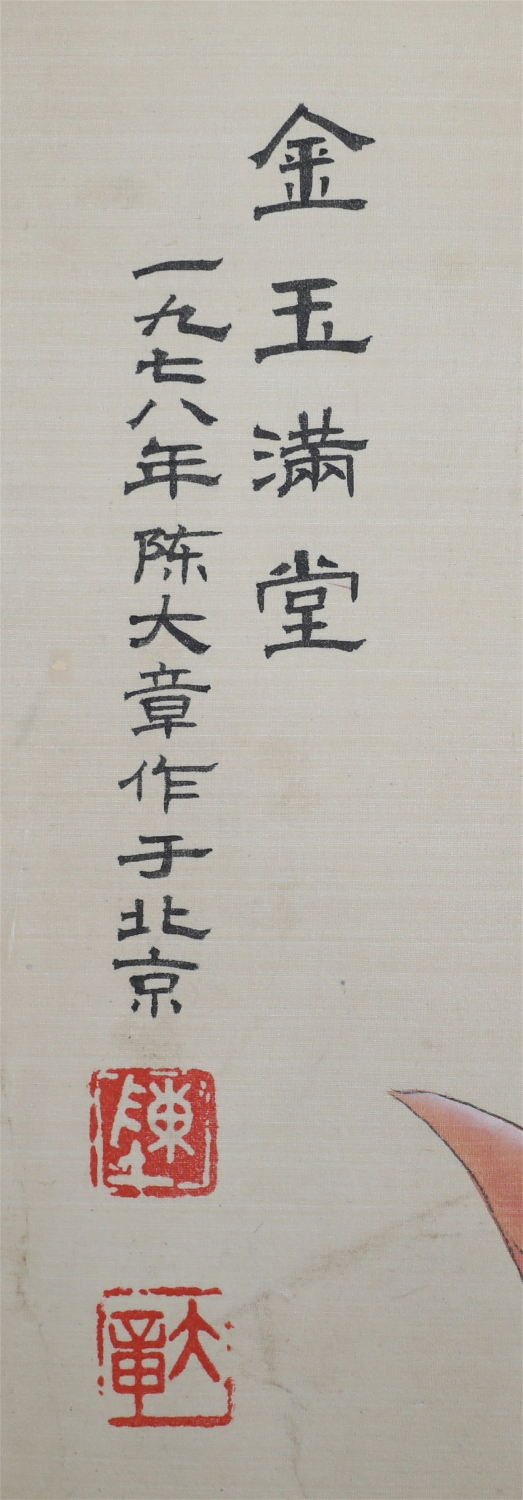 金玉满堂
一九七八年陈大章作于北京
大章